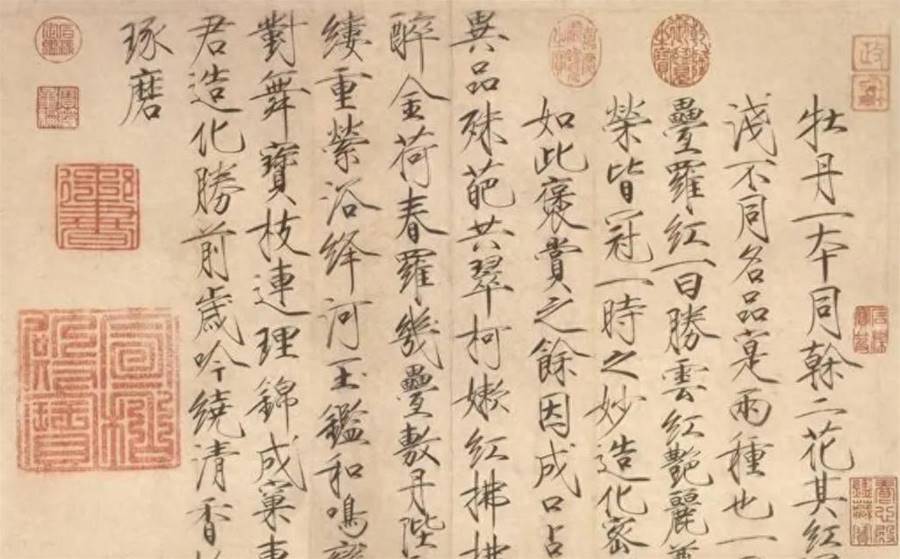 牡丹一本同榦二花其紅
淺不同名品寔兩種也一
疊羅紅一曰勝雲紅艷麗
榮皆冠一時之妙造化密
如此褒賞之餘因成口占
異品殊葩共翠柯嫩紅拂拂
醉金荷春羅幾疊敷丹陛
縷重縈浴絳河玉鑑和鳴
對舞寶枝連理錦成窠東
君造化勝前歲吟繞清香
琢磨
御書